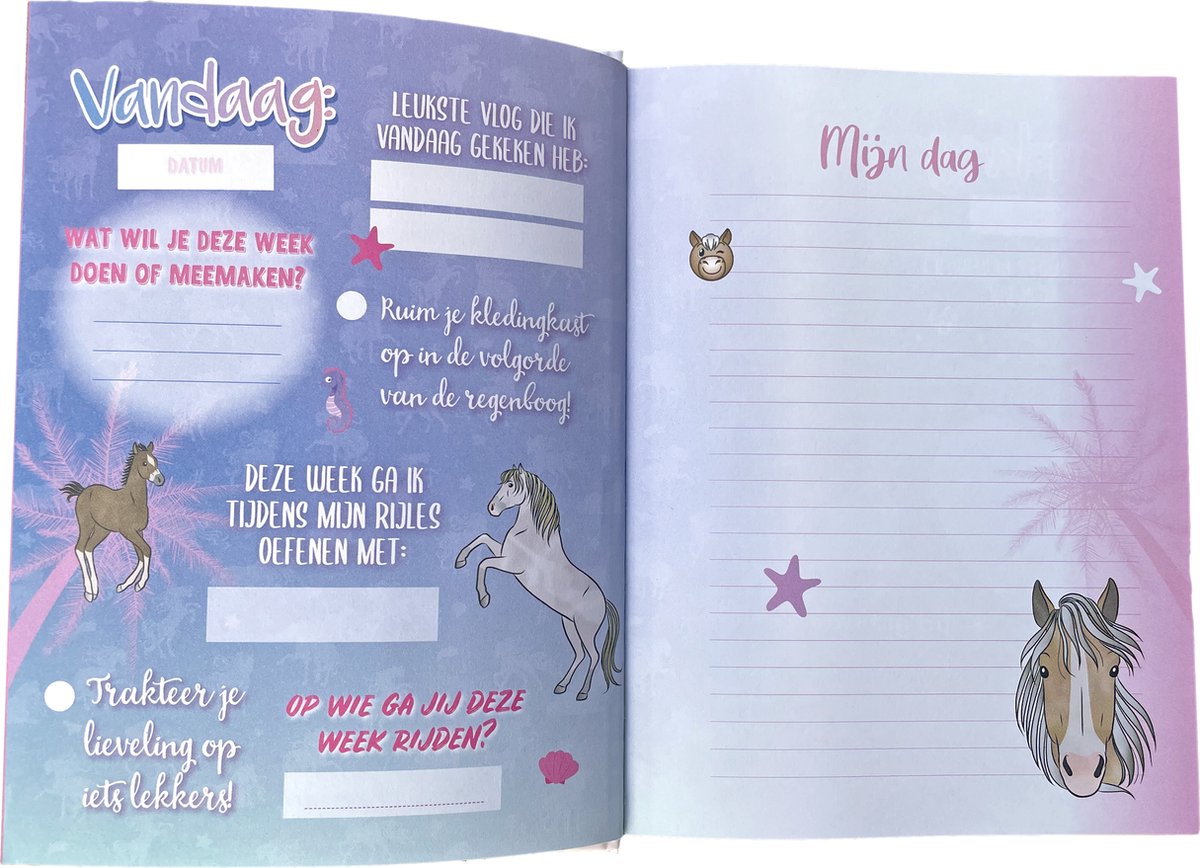 Vandaag:
DATUM
WAT WIL JE DEZE WEEK
DOEN OF MEEMAKEN?
LEUKSTE VLOG DIE IK
VANDAAG GEKEKEN HEB:
Ruim je kledingkast
op in de volgorde
van de regenboog!
DEZE WEEK GA IK
TIJDENS MIJN RIJLES
OEFENEN MET:
Trakteer je
lieveling op
iets lekkers!
OP WIE GA JIJ DEZE
WEEK RIJDEN?
Mijn dag